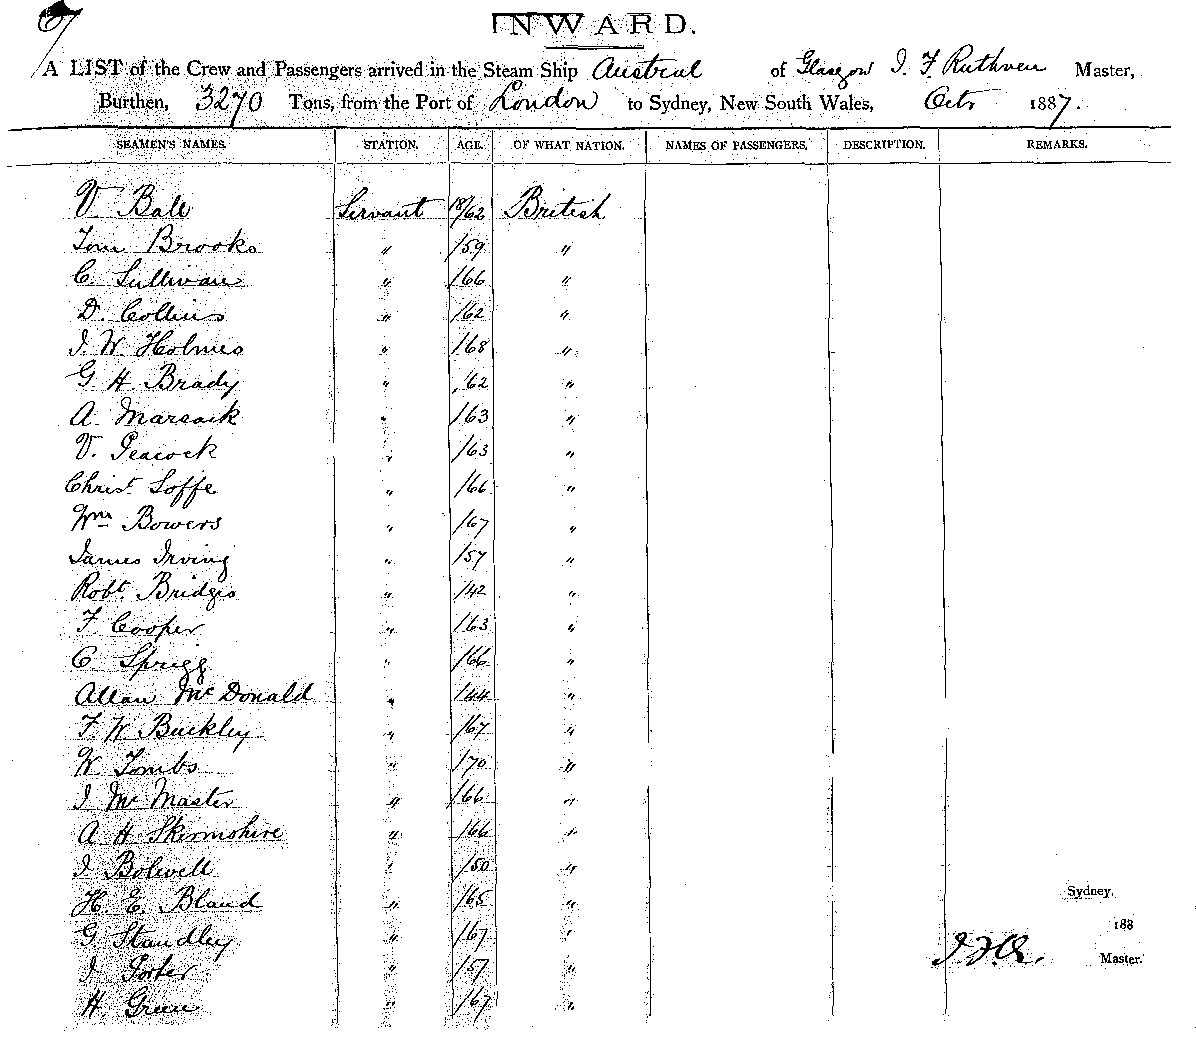 INWARD.
A LIST of the Crew and Passengers arrived in the Steam Ship Austral of Glasgow J. F Ruthven Master,
Burthen, 3270 Tons, from the Port of London to Sydney, New South Wales, Octr 1887.
SEAMEN'S NAMES. STATION. AGE. OF WHAT NATION. NAMES OF PASSENGERS. DESCRIPTION. REMARKS.
V Ball Servant 18/62 British
Tom Brooks " /59 "
C. Sullivan " /66 "
D. Collins " /62 "
J. W. Holmes " /68 "
G H Brady " /62 "
A. Marsack " /63 "
V. Peacock " /63 "
Christ. Loffe " /66 "
Wm Bowers " /67 "
James Irving " /57 "
Robt. Bridges " /42 "
F Cooper " /63 "
C Sprigg " /66 "
Allan McDonald " /44 "
F W Buckley " /67 "
W Tombs " /70 "
J McMaster " /66 "
A H " /66 "
J Bolwell " /50 "
H. E. Bland " /65 "
Sydney,
G Standley " /67 "
188
J Porter " /57 "
J F R. Master.
H Green " /67 "